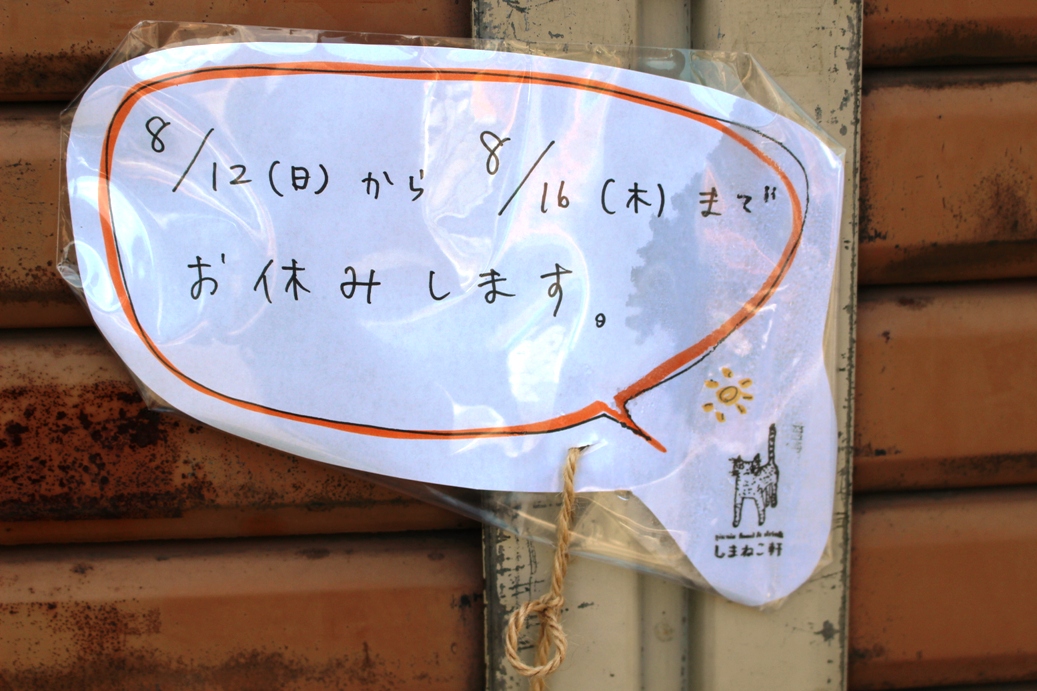 8/12(日)から 8/16(木)まで
お休みします。
picnic food & drink
しまねこ軒